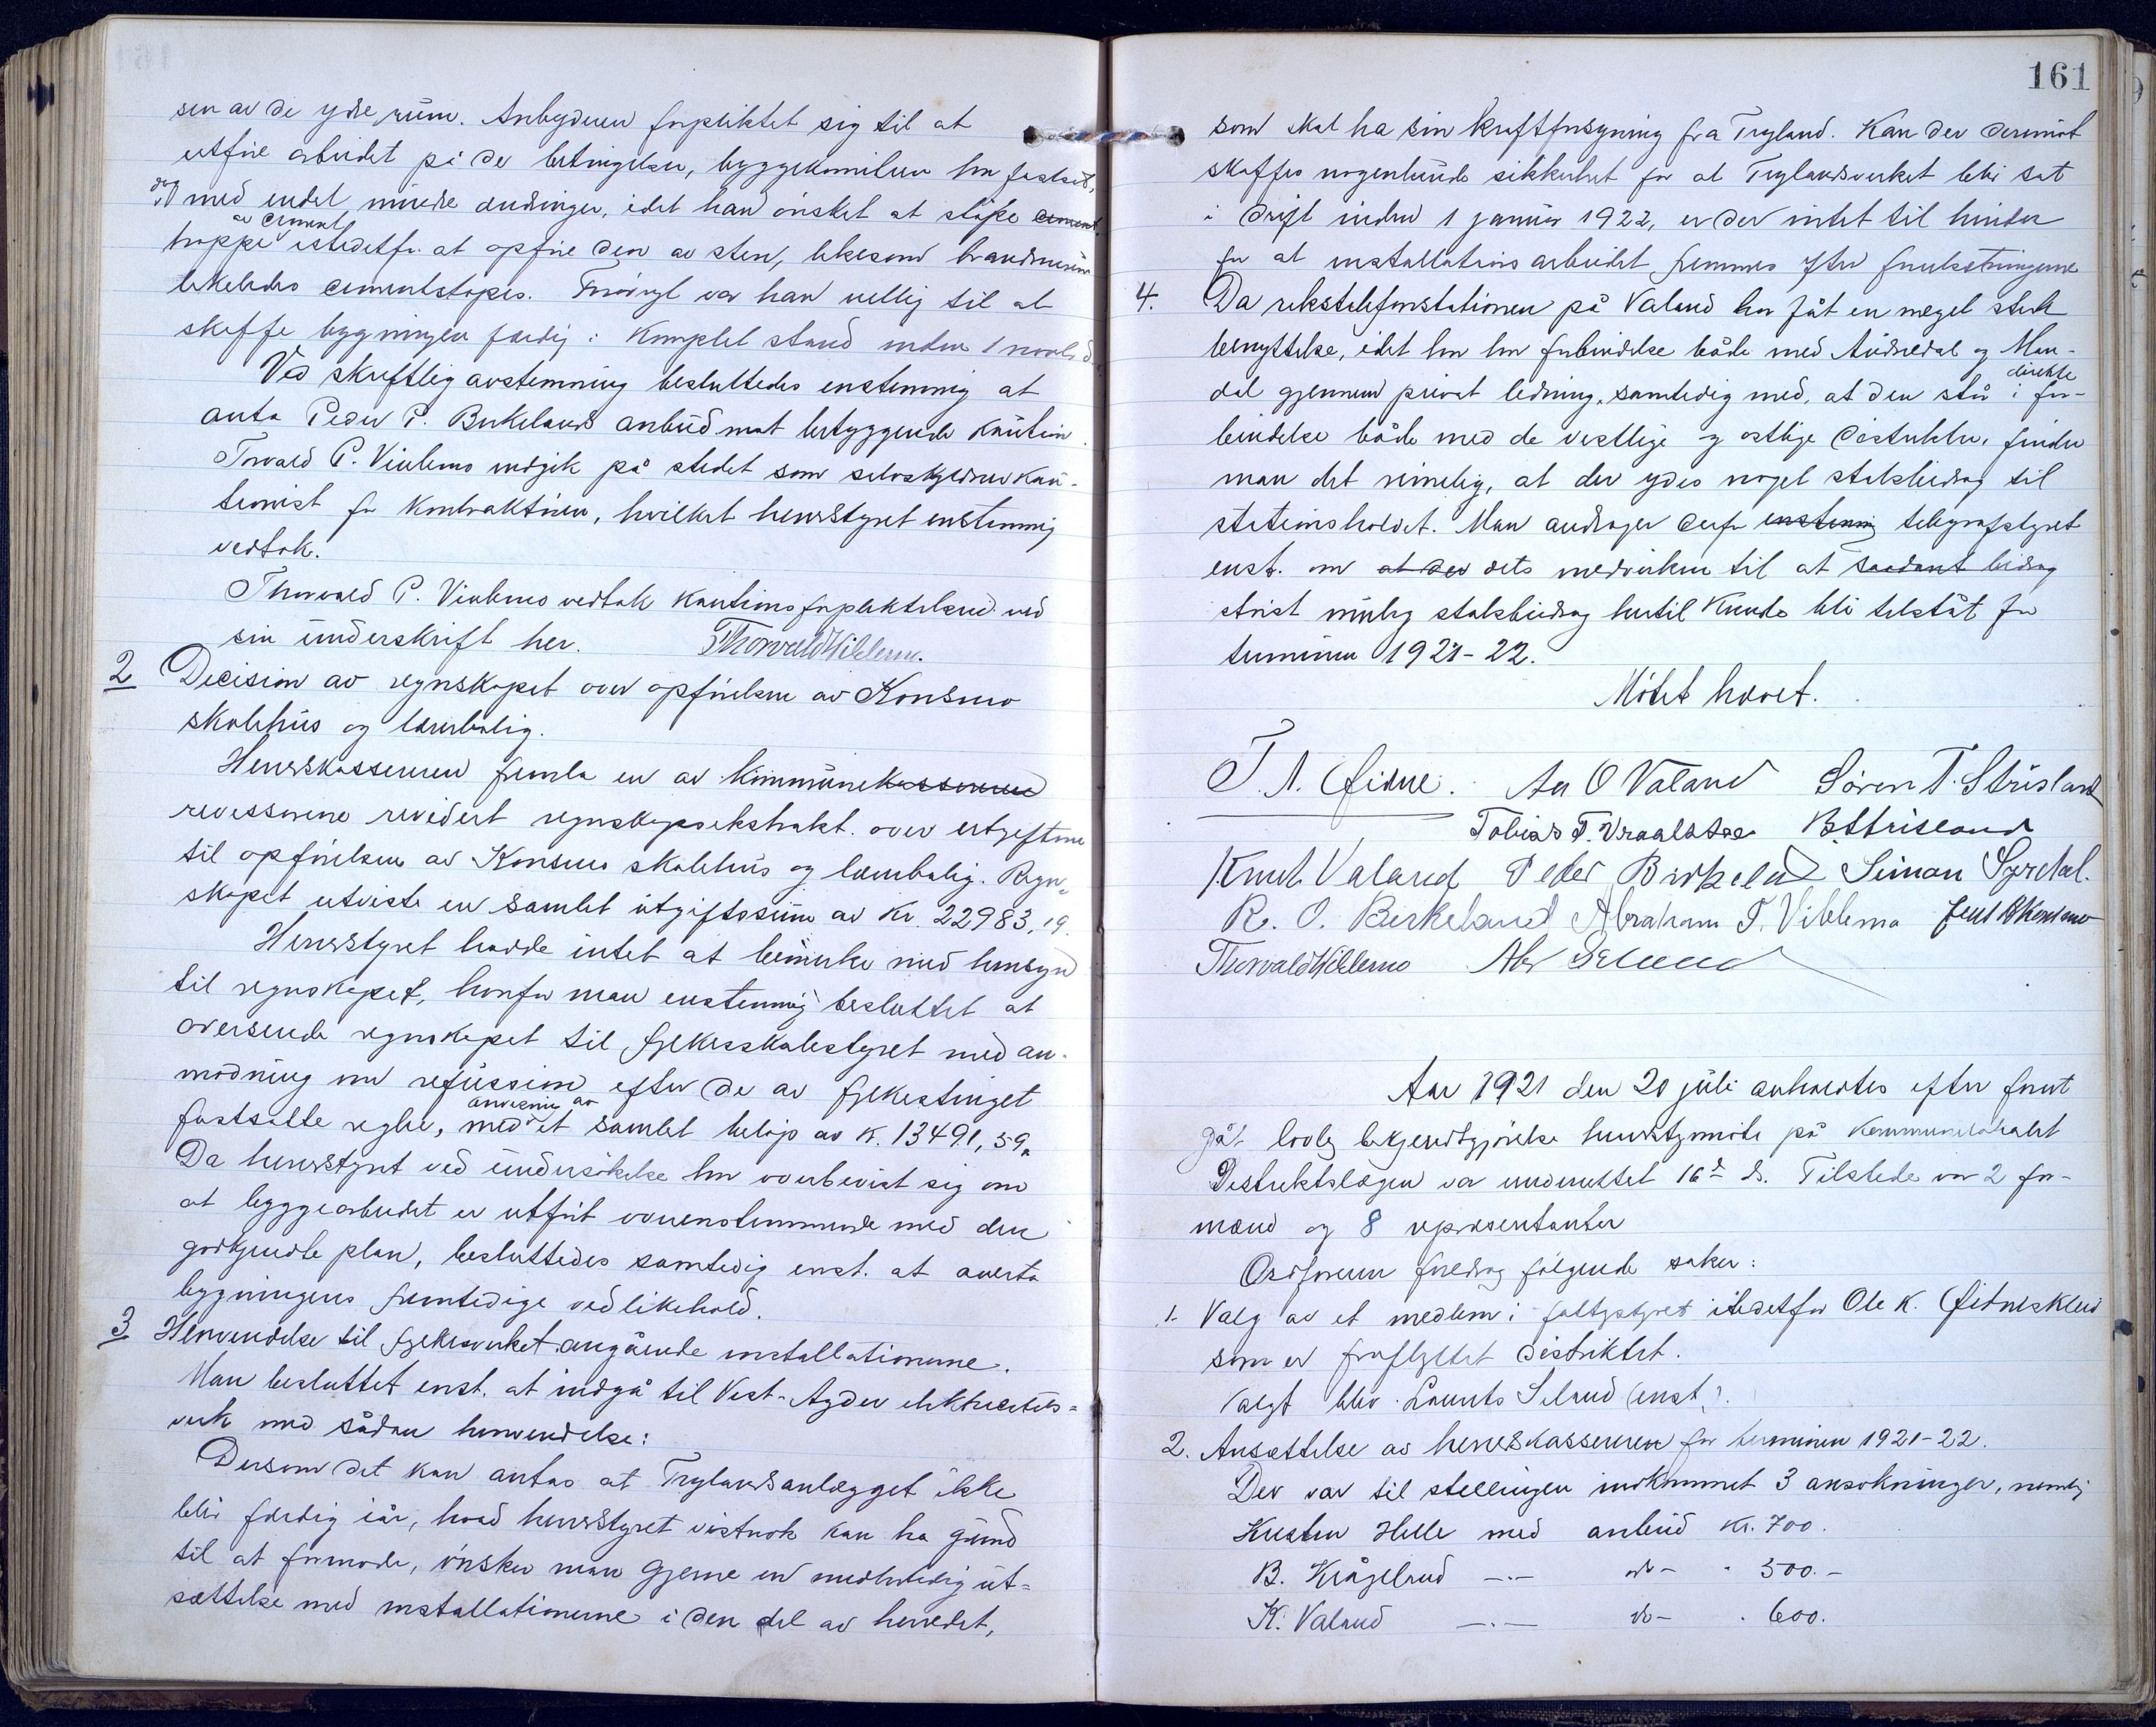 sen av de ydre rum. Anbyderen forpliktet sig til at
utføre arbeidet på de betingelser, byggekomiteen har fastsat,
dog med endel mindre endringer, idet han ønsket at støpe cement
trappe av cement istedetfor at opføre den av sten, likesom brandmuren
likeledes cementstøpes. Forøvrigt var han villig til at
skaffe bygningen færdig i komplet stand inden 1 novbr. d.
Ved skriftlig avstemning besluttedes enstemmig at
anta Peder P. Birkelands anbud mot betryggende kaution.
Torvald P. Viblemo indgik på stedet som selvskyldnerkau-
tionist for kontraktøren, hvilket herredstyret enstemmig
vedtok.
Thorvald P. Viblemo vedtok kautionsforpliktelsen ved
sin underskrift her. Thorvald Viblemo.
2 Decision av regnskapet over opførelsen av Konsmo
skolehus og lærerbolig.
Herredskassereren fremla en av kommunekassereren
revisorene revidert regnskapsekstrakt over utgiftene
til opførelsen av Konsmo skolehus og lærerbolig. Regn-
skapet utviste en samlet utgiftssum av kr. 22983,19.
Herredstyret hadde intet at bemerke med hensyn
til regnskapet, hvorfor man enstemmig besluttet at
oversende regnskapet til fylkesskolestyret med an-
modning om refusion efter de av fylkestinget
fastsatte regler, med anvisning av et samlet beløp av kr. 13491,59.
Da herredstyret ved undersøkelse har overbevist sig om
at byggearbeidet er utført overensstemmende med den
godkjendte plan, besluttedes samtidig enst. at overta
bygningens fremtidige vedlikehold.
3 Henvendelse til fylkesverket angående installationerne.
Man besluttet enst. at indgå til Vest-Agder elektricitets-
verk med sådan henvendelse:
Dersom det kan antas at Trylandsanlægget ikke
blir færdig iår, hvad herredstyret vistnok kan ha grund
til at formode, ønsker man gjerne en midlertidig ut-
sættelse med installationerne i den del av herredet,
161
som skal ha sin kraftforsyning fra Tryland. Kan der derimot
skaffes nogenlunde sikkerhet for at Trylandsverket blir sat
i drift inden 1 januar 1922, er der intet til hinder
for at installationsarbeidet fremmes efter forutsætningerne
4. Da rikstelefonstationen på Valand har fåt en meget sterk
benyttelse, idet den har forbindelse både med Audnedal og Man-
dal gjennem privat ledning, samtidig med, at den står i direkte for-
bindelse både med de vestlige og østlige distrikter, finder
man det rimelig, at der ydes noget statsbidrag til
stationsholdet. Man andrager derfor enstemmig telegrafstyret
enst. om at der dets medvirken til at saadant bidrag
størst mulig statsbidrag hertil kunde bli tilståt for
terminen 1921-22.
Møtet hævet.
T. A. Øidne. Aa O Valand Søren T. Strisland
Tobias T. Vraalstad B Strisland
Knut Valand Peder Birkeland Simon Syrdal.
R. O. Birkeland Abraham T. Viblemo Jens Konsmo
Thorvald Viblemo
Aar 1921 den 20 juli avholdtes efter forut
gåt lovlig bekjendtgjørelse herredsmøte på kommunelokalet
Distriktslægen var underrettet 16de ds. Tilstede var 2 for-
mænd og 8 repræsentanter
Ordføreren foredrog følgende saker:
1. Valg av et medlem i fattigstyret istedetfor Ole K. Øidneskleiv
som er fraflyttet distriktet.
Valgt blev Laurits Seland (enst.).
2. Ansættelse av herredskassereren for terminen 1921-22.
Der var til stillingen indkommet 3 ansøkninger, nemlig
Kristen Helle med anbud kr. 700.
B. Krågelund -.- do - - 500.-
K. Valand -.- do - . 600.